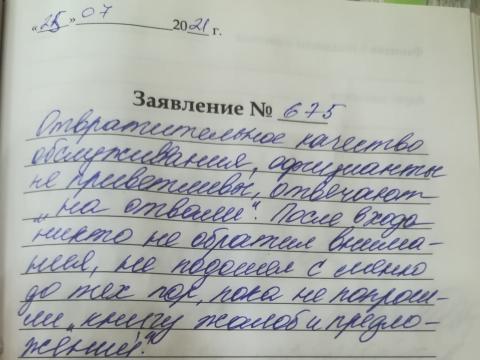 «25» 07 2021 г.
Заявление № 675
Отвратительное качество
обслуживания, официанты
не приветливы, отвечают
„на отвали". После входа
никто не обратил внима-
ния, не подошел с меню
до тех пор, пока не попроси-
ли „книгу жалоб и предло-
жений".